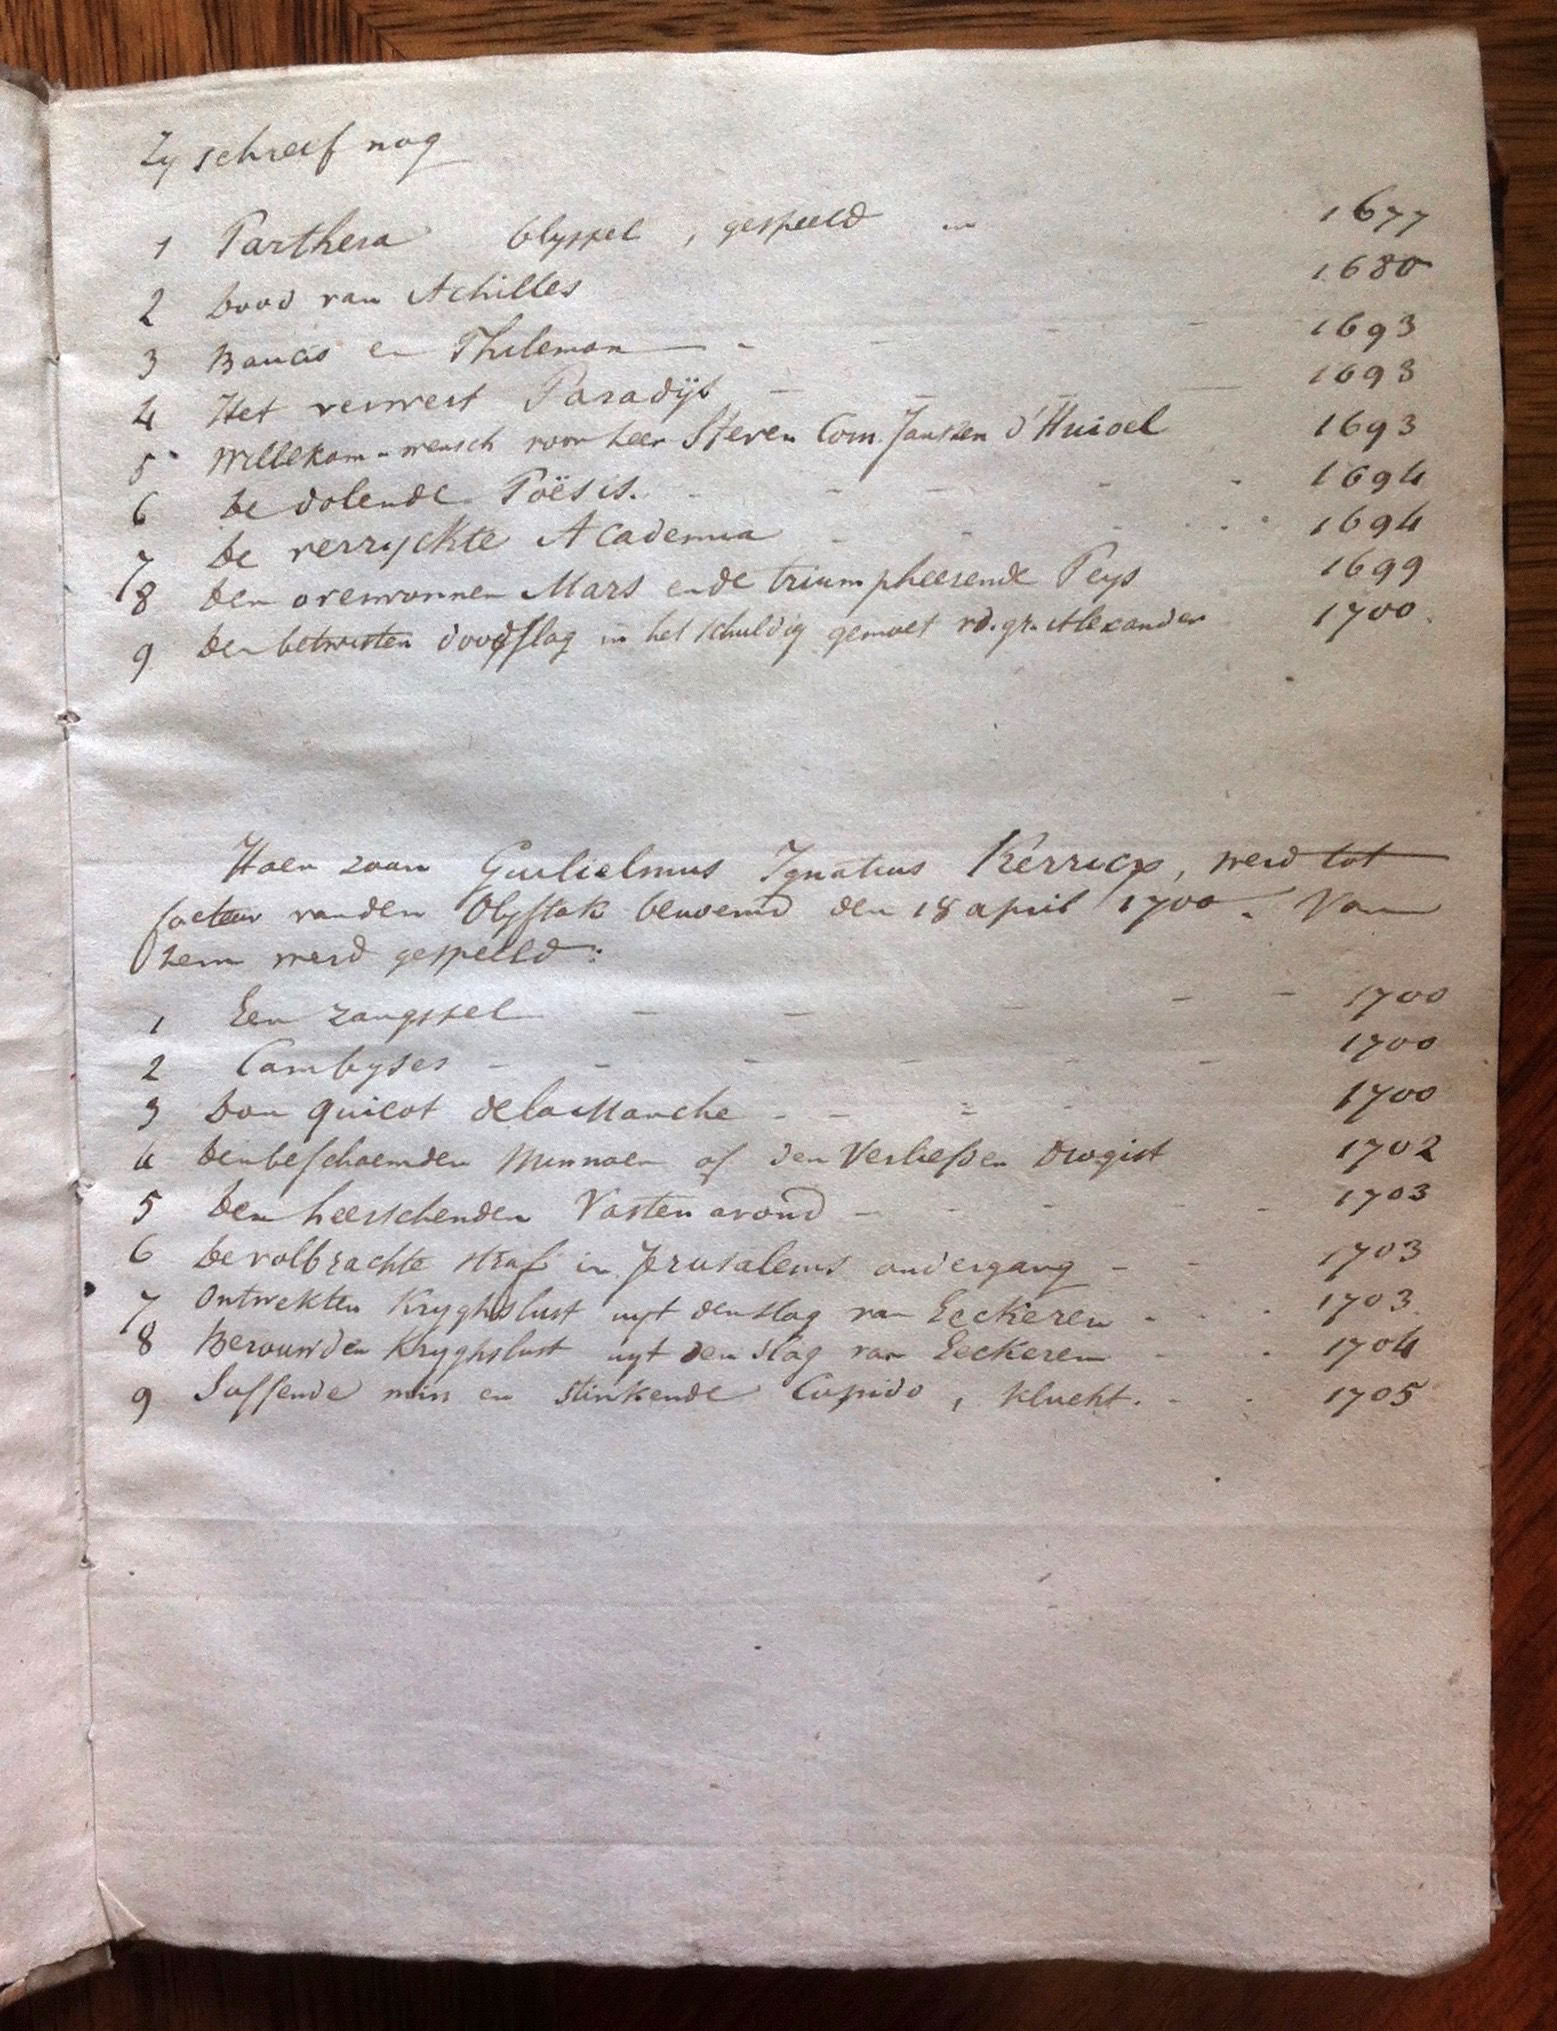 Zy schreef nog
1 Parthera blyspel, gespeeld in 1677
2 Dood van Achilles 1680
3 Baucis en Philemon - - - - 1693
4 Het verwest Paradÿs - - - 1693
5 Willekom-wensch voor heer Steven Corn. Janssen d'Huioel 1693
6 De dolende Poësis. - - - - - 1694
7 De verryckte Academia - - - - - 1694
8 Den overwonnen Mars ende triumpheerende Peys 1699
9 Den betwisten doodslag in het schuldig gemoet vd. gr. Alexander 1700.
Haer zoon Gulielmus Ignatius Kerricx, werd tot
facteur vanden Olyftak benoemd den 18 april 1700. Van
hem werd gespeeld:
1 Een zangspel - - - - - 1700
2 Cambyses - - - - - - 1700
3 Don Quicot dela Manche - - - - 1700
4 Den beschaemden Minnaer of den Verliefden Drogist 1702
5 Den heerschenden Vasten avond - - - - - - 1703
6 De volbrachte straf in Jerusalems ondergang - - 1703
7 Ontwekten Kryghslust uyt den slag van Eeckeren - - - 1703.
8 Bevounden Kryghslust uyt den slag van Eeckeren - - 1704
9 Suffende min en stinkende Cupido, klucht. - - 1705